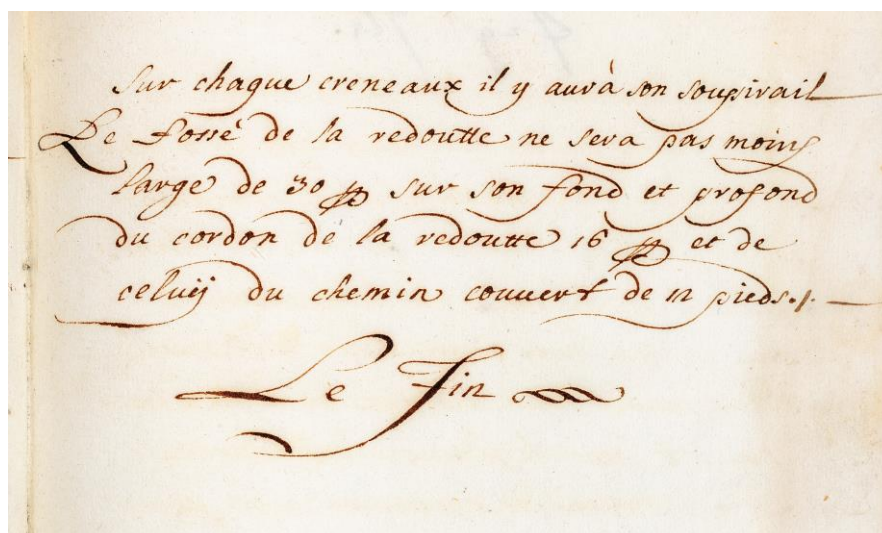 Sur chaque creneaux il y aurà son soupirail
Le fossé de la redoutte ne sera pas moins
large de 30 pp sur son fond et profond
du cordon de la redoutte 16 pp et de
celuÿ du chemin couvert de 12 pieds./.
Le Fin